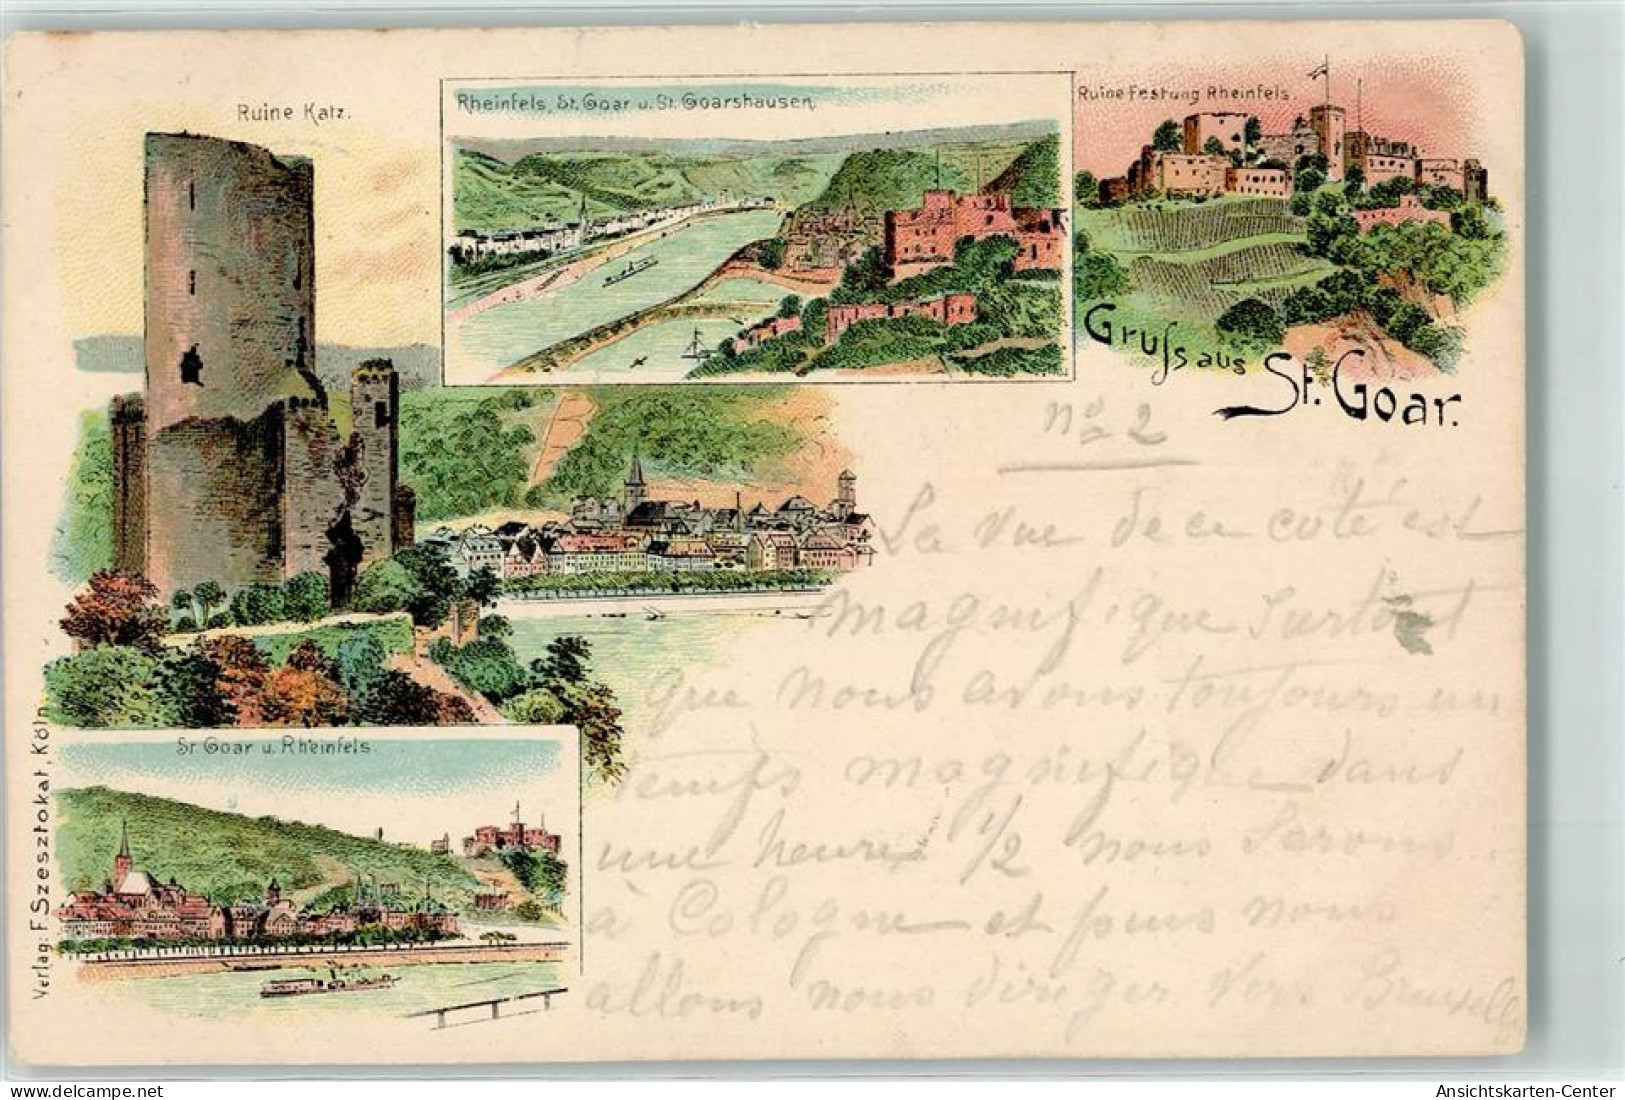 Ruine Katz.
Rheinfels, St. Goar u. St. Goarshausen.
Ruine Festung Rheinfels.
Gruss aus
St. Goar.
nº 2
La vue de ce coté est
magnifique surtout
que nous avons toujours un
temps magnifique dans
une heure 1/2 nous serons
à Cologne et puis nous
allons nous diriger vers Bruxelles
St. Goar u. Rheinfels.
Verlag: F. Szesztokat, Köln
oldthing.de
Ansichtskarten-Center